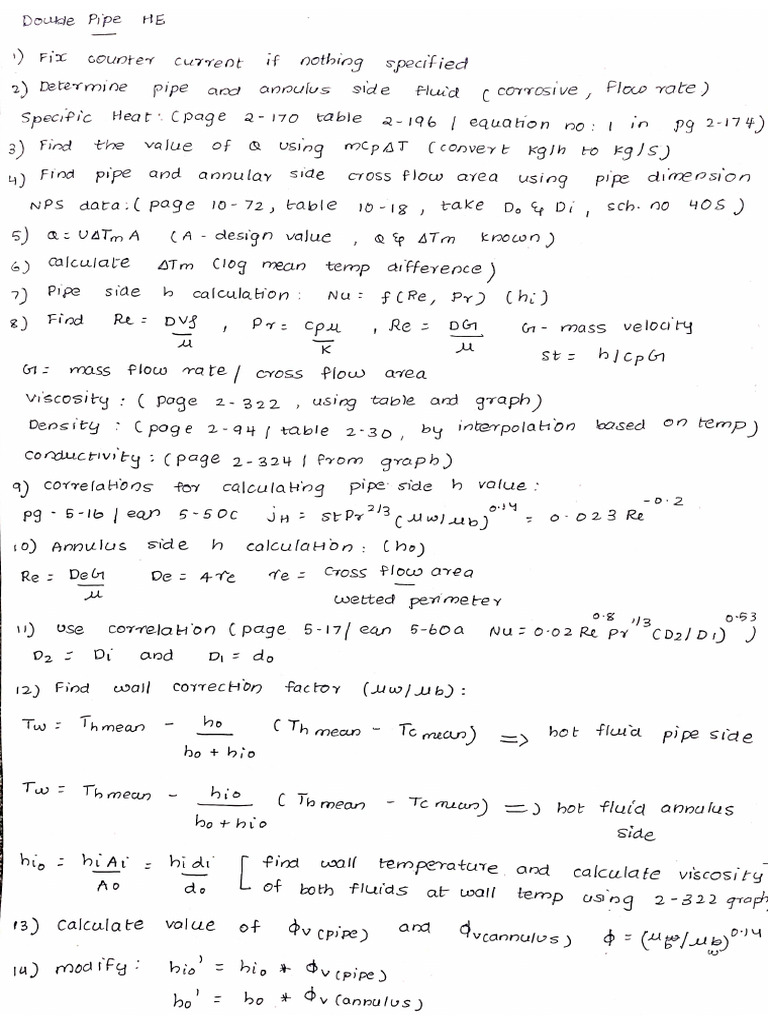 Double Pipe HE
1) Fix counter current if nothing specified
2) Determine pipe and annulus side fluid (corrosive, flow rate)
Specific Heat: (page 2-170 table 2-196 / equation no: 1 in pg 2-174)
3) Find the value of Q using mcpΔT (convert kg/h to kg/s)
4) Find pipe and annular side cross flow area using pipe dimension
NPS data: (page 10-72, table 10-18, take Do & Di, sch. no 40S)
5) Q = UΔTm A (A - design value, Q & ΔTm known)
6) calculate ΔTm (log mean temp difference)
7) Pipe side h calculation: Nu = f(Re, Pr) (hi)
8) Find Re = DVρ/μ, Pr = cpμ/K, Re = DG/μ G - mass velocity
st = h/cpG
G = mass flow rate / cross flow area
Viscosity: (page 2-322, using table and graph)
Density: (page 2-94 / table 2-30, by interpolation based on temp)
conductivity: (page 2-324 / from graph)
9) correlations for calculating pipe side h value:
pg - 5-16 / eqn 5-50c jH = stPr^2/3 (μw/μb)^0.14 = 0.023 Re^-0.2
10) Annulus side h calculation: (ho)
Re = DeG/μ De = 4re re = cross flow area / wetted perimeter
11) Use correlation (page 5-17 / eqn 5-60a Nu = 0.02 Re^0.8 Pr^1/3 (D2/D1)^0.53)
D2 = Di and D1 = do
12) Find wall correction factor (μw/μb):
Tw = Th mean - ho/(ho + hio) (Th mean - Tc mean) => hot fluid pipe side
Tw = Th mean - hio/(ho + hio) (Th mean - Tc mean) => hot fluid annulus
side
hio = hi Ai/Ao = hi di/do [ find wall temperature and calculate viscosity
of both fluids at wall temp using 2-322 graph
13) Calculate value of ϕv (pipe) and ϕv (annulus) ϕ = (μb/μw)^0.14
14) modify: hio' = hio * ϕv (pipe)
ho' = ho * ϕv (annulus)